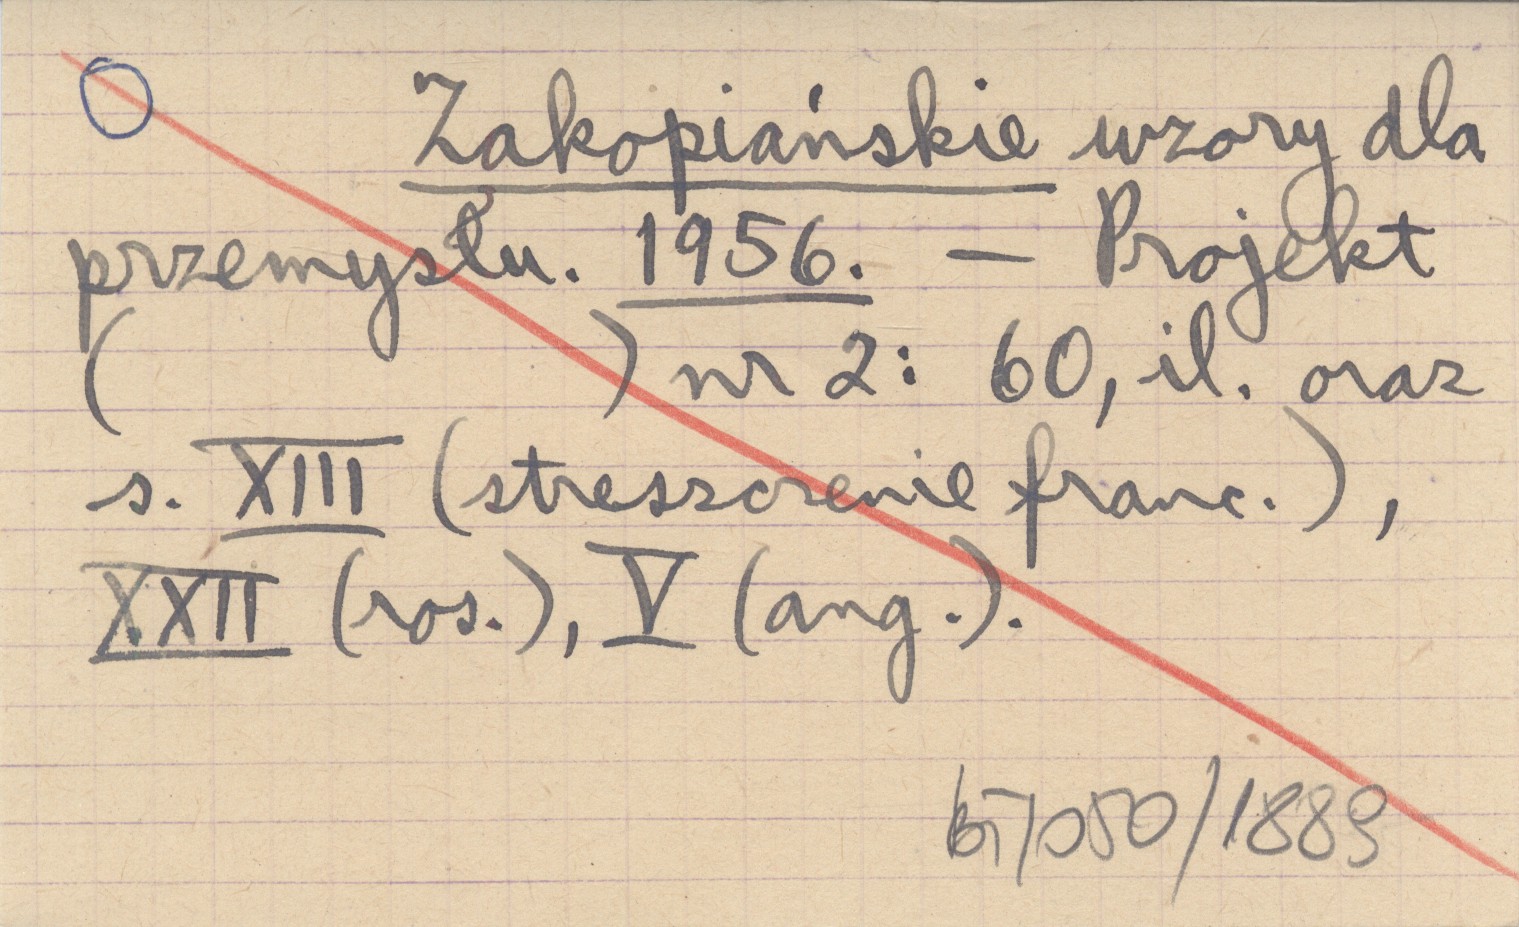 Zakopiańskie wzory dla
przemysłu. 1956. — Projekt
( ) nr 2: 60, il. oraz
s. XIII (streszczenie franc.),
XXII (ros.), V (ang.).
/1889